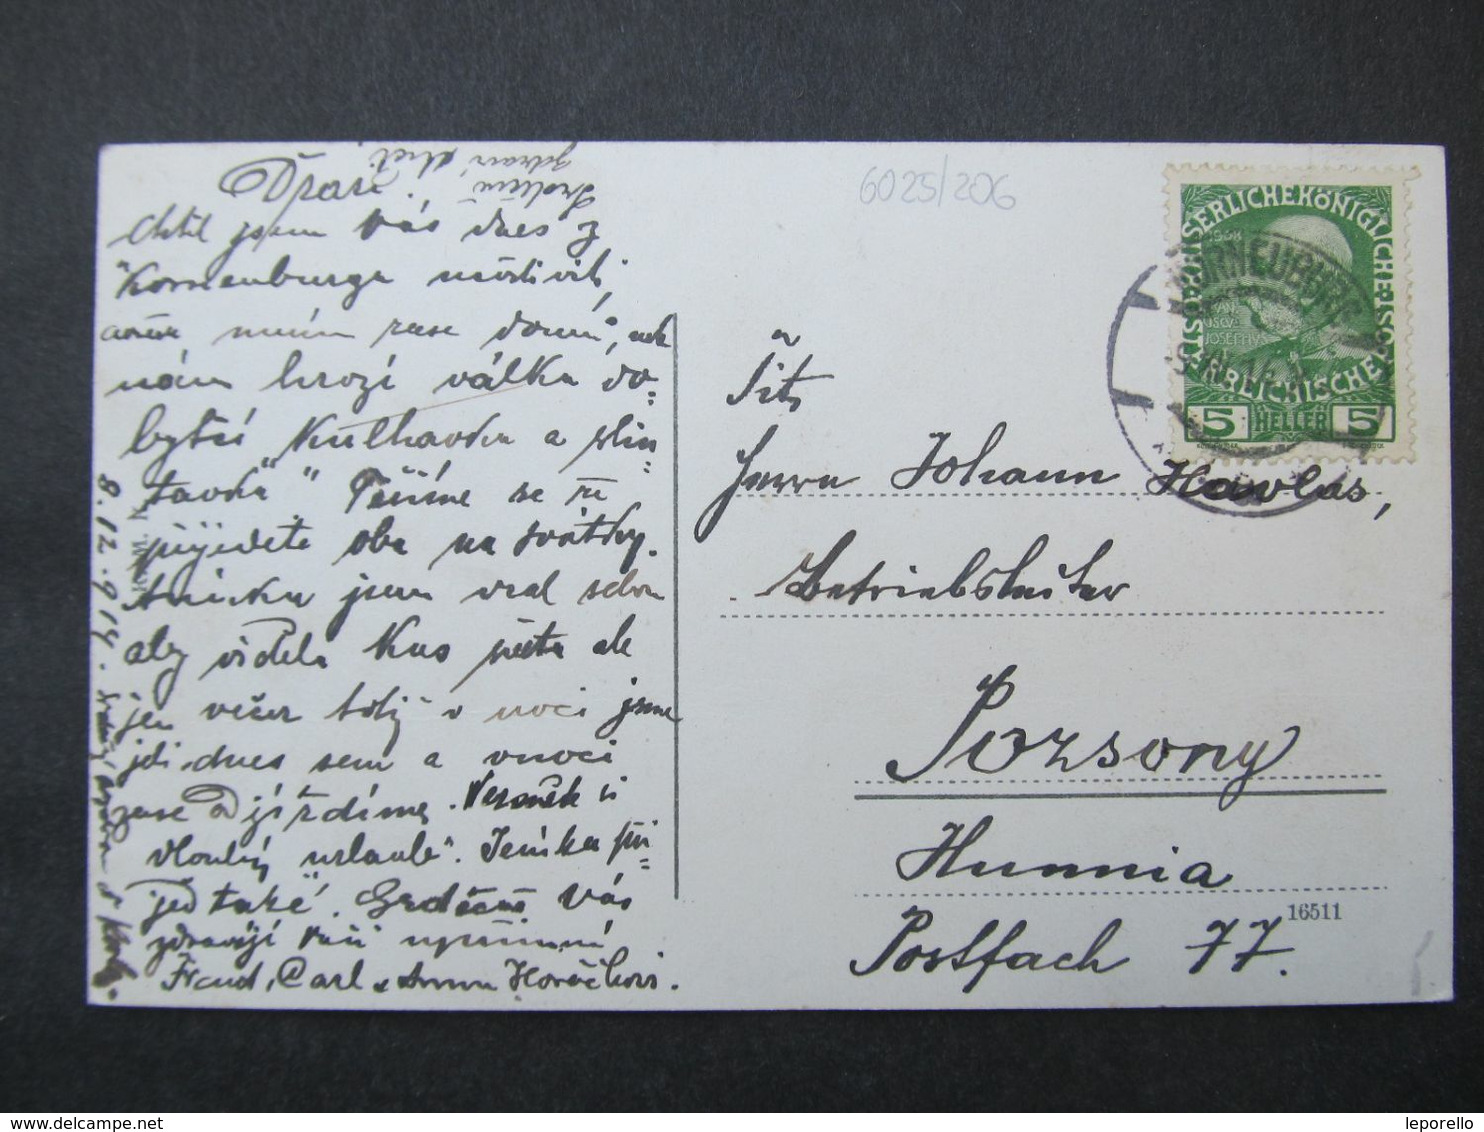 Drazí!
Chtěl jsem Vás dnes z
Korneuburgu navštíviti,
ačkoliv musím zase domů, nebo
nám hrozí válka do-
bytčí "Kulhavka a slin-
tavka" Těšíme se že
přijedete oba na svátky.
Aninku jsem vzal sebou
aby viděla kus světa ale
jen večer totiž v noci jsme
jeli dnes sem a v noci
zase odjíždíme.
dlouhý urlaub. Jeníka při-
jed také. Srdečně Vás
zdravíjí Vaši upřímní
Ferd, Carl a Anna Horáčkovi.
8.12.914.
6025/206
KAISERLICHE KÖNIGLICHE
ÖSTERREICHISCHE POST
1908
5 HELLER 5
KORNEUBURG
Tit
Herrn Johann Havlas,
Betriebsleiter
Pozsony
Hunnia
16511
Postfach 77.
leporello